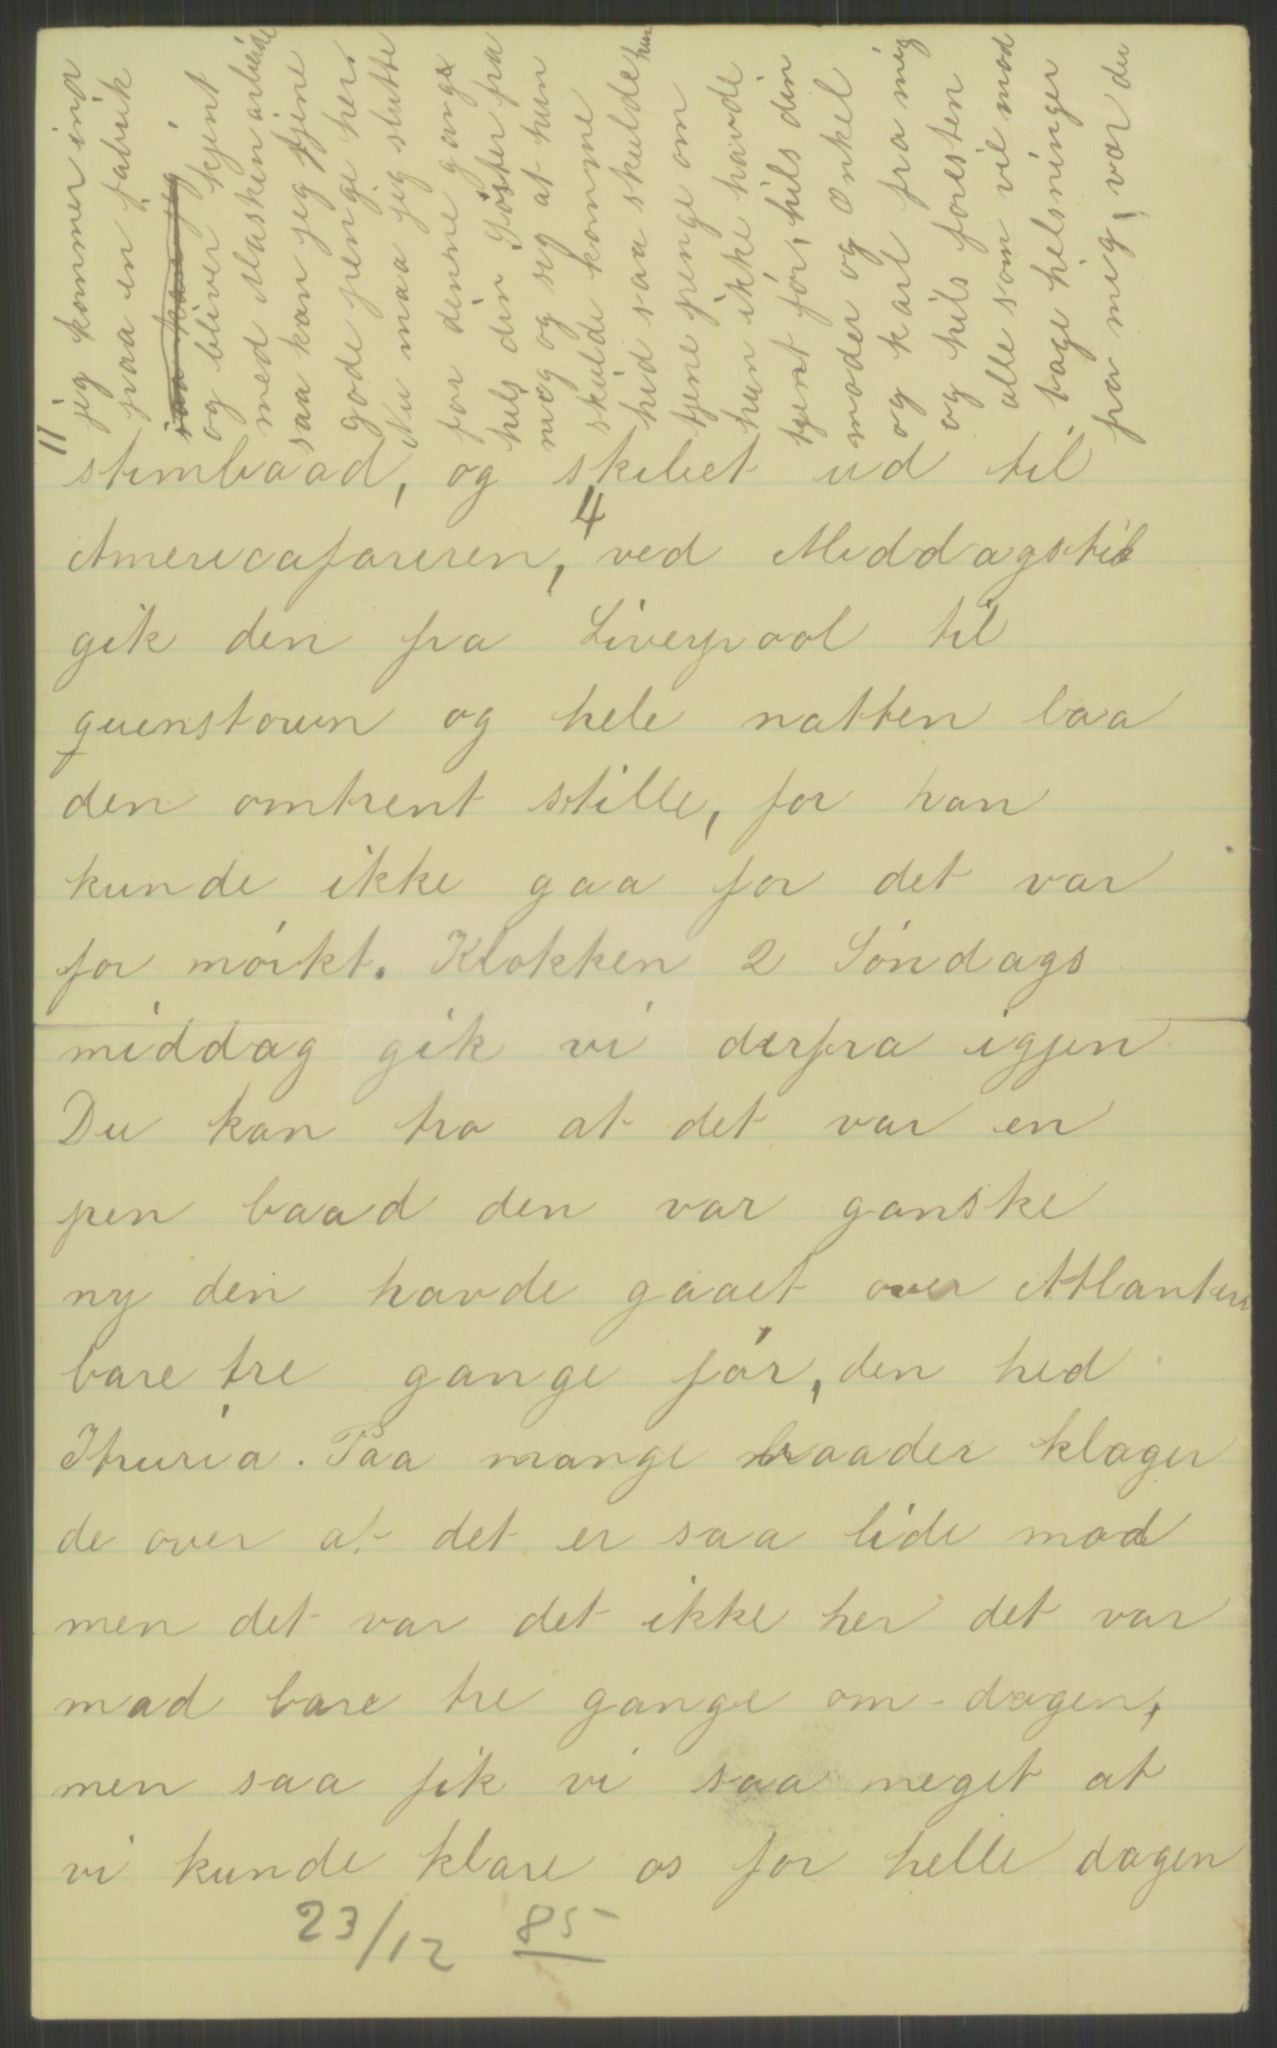 jeg kommer ind
paa en fabrik
saa kan jeg
og bliver kjent
med Maskinarbeide
saa kan jeg tjene
gode penge her.
Nu maa jeg slutte
for denne gang
hils din Söster fra
mig og seg at hun
skulde komme
hid saa skulde hun
tjene penge om
hun ikke havde
tjent för, hils din
moder og Onkel
og Karl fra mig
og hils foresten
alle som vil mod
tage hilsninger
fra mig, vær du
11
stimbaad, og skibet ud til
4
Americafareren, ved Middagstid
gik den fra Liverpool til
quenstown og hele natten laa
den omtrent stille, for han
kunde ikke gaa for det var
for mörkt. Klokken 2 Söndags
middag gik vi derfra igjen
Du kan tro at det var en
pen baad den var ganske
ny den havde gaaet over Atlanteren
bare tre gange för, den hed
Itruria. Paa mange baader klager
de over at det er saa lide mad
men det var det ikke her det var
mad bare tre gange om dagen,
men saa fik vi saa meget at
vi kunde klare os for helle dagen
23/12 85